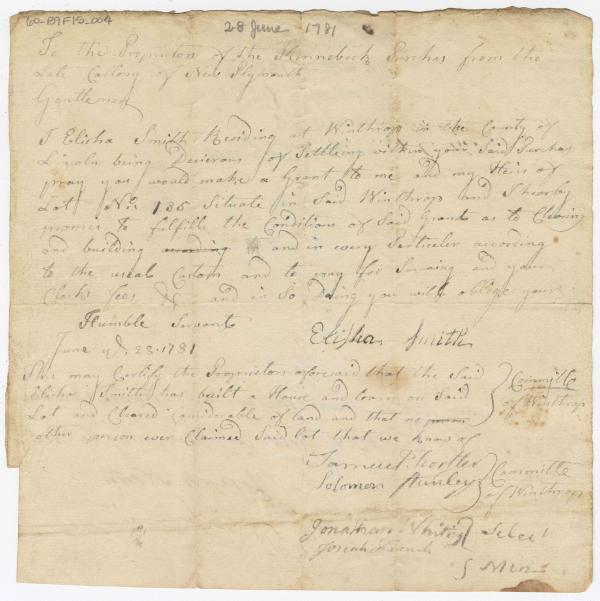 60-B9F15-004
28 June 1781
To the Proprietors of the Kennebeck Purchas from the
Late Collony of New Plymouth
Gentlemen
I Elisha Smith Residing at Winthrop in the County of
Lincoln being Desierous of Settleing within your Said Purchas
pray you would make a Grant to me and my Heirs of
Lot No: 186 Situate in Said Winthrop and I hearby
promies to fulfill the Conditions of Said Grant as to Clearing
and building according and in every Perticeler according
to the useal Custom and to pay for Survaing and your
Clerks fees & and in So Doing you will oblige your
Humble Servant
Elisha Smith
June ye 28 1781
This may Certify the Proprietors aforesaid that the Said
Elisha Smith has built a House and barn on Said
Lot and Cleared Considerable of land and that no person
other person ever Claimed Said lot that we know of
Committe
of Winthrop
Solomon Stanley
Committe
of Winthrop
Jonathan Whiting
Josiah French
Select
Men